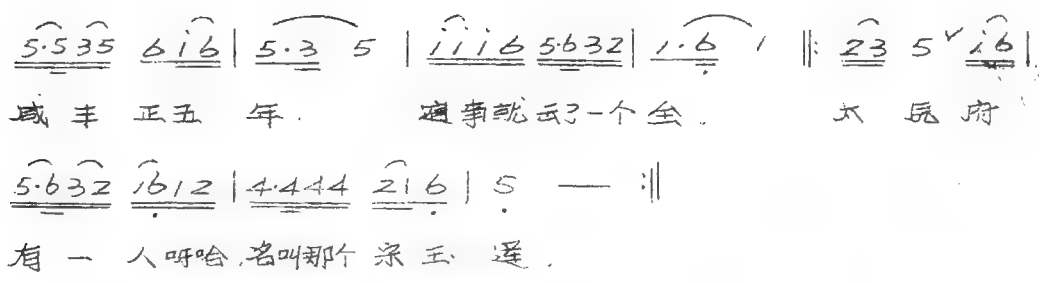 5·535 6i6 | 5·3 5 | iii6 5·632 | 1·6 1 ‖: 23 5 ˅ i6 |
咸丰正五年. 事就云了一个全. 太 府
5·632 1612 | 4·444 216 | 5 — :‖
有一人呀哈,名叫那个宋玉莲.